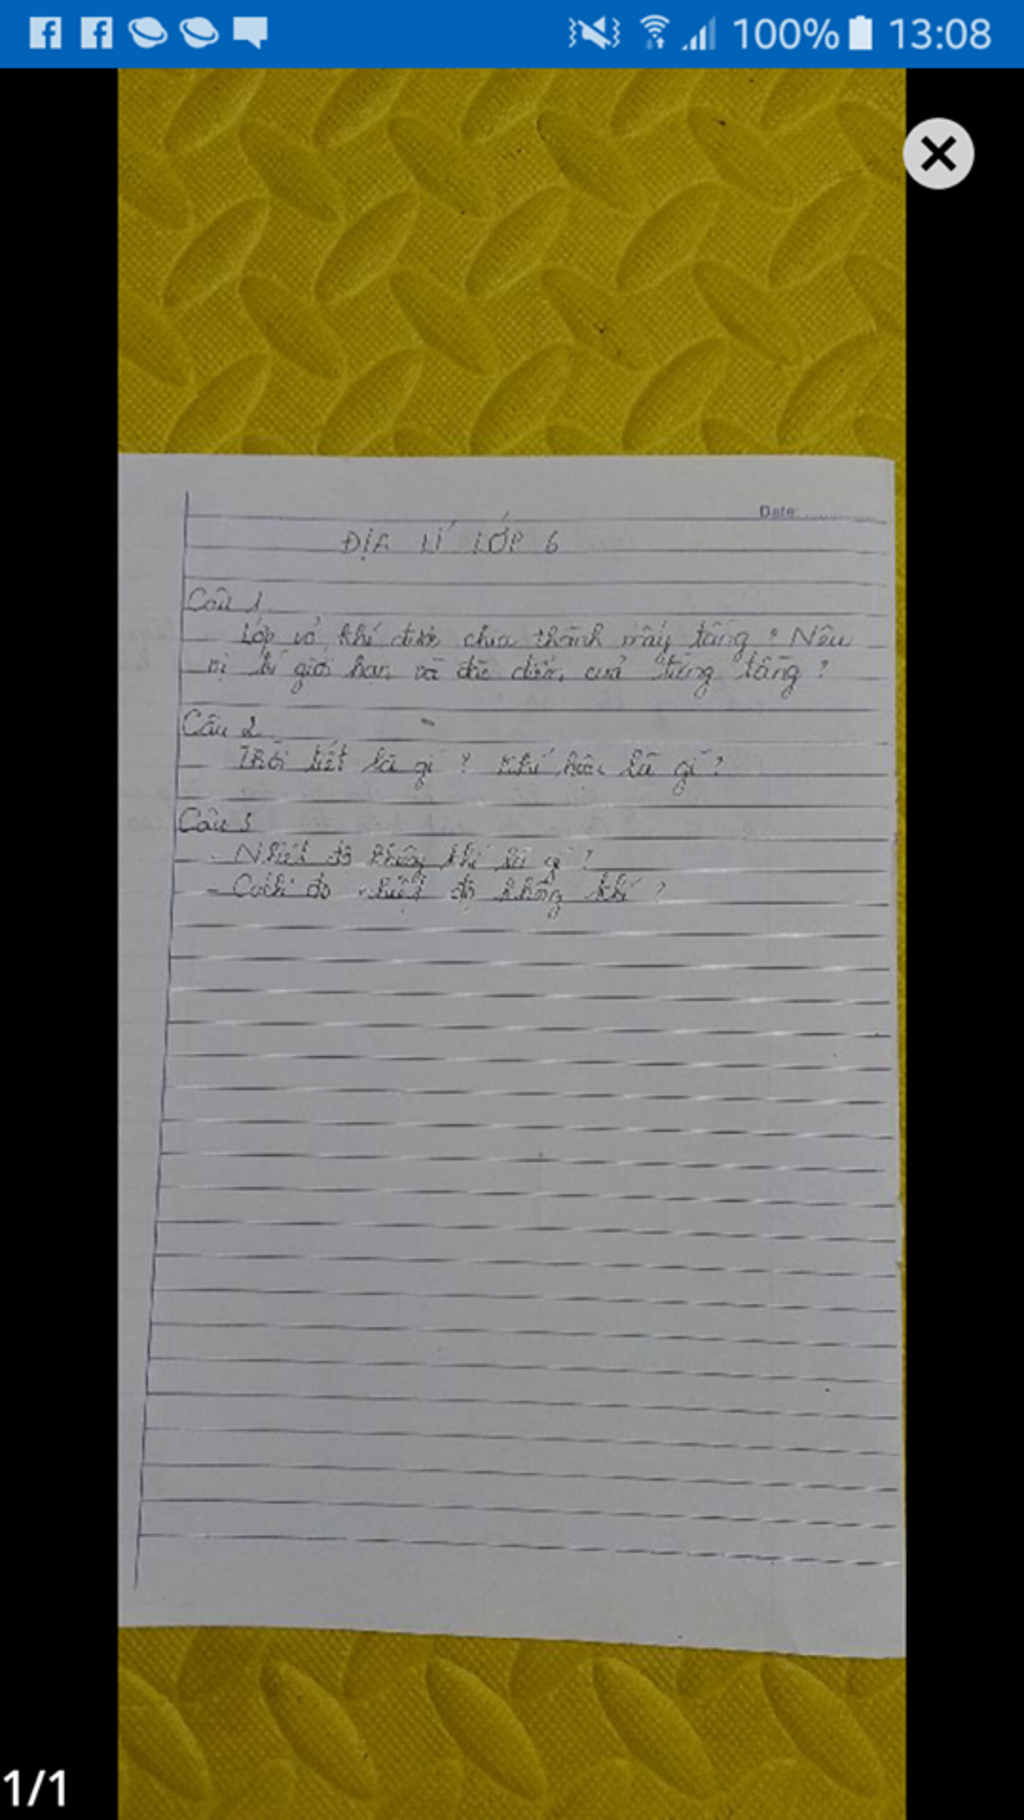 100% 13:08
Date:
ĐỊA LÍ LỚP 6
Câu 1
Lớp vỏ khí được chia thành mấy tầng? Nêu
vị trí giới hạn và đặc điểm của từng tầng?
Câu 2
Thời tiết là gì? Khí hậu là gì?
Câu 3
- Nhiệt độ không khí là gì?
- Cách đo nhiệt độ không khí?
1/1